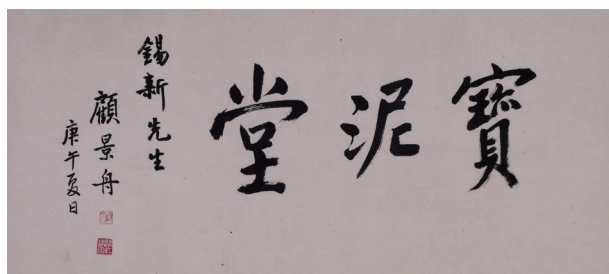 寶泥堂
錫新先生
顧景舟
庚午夏日